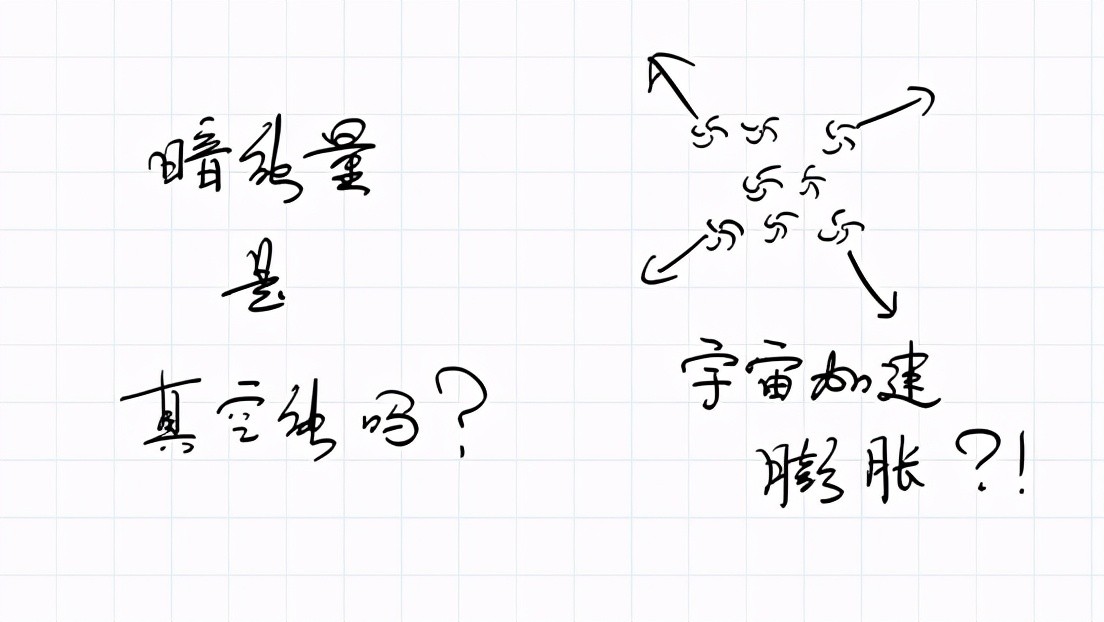 暗能量
是
真空能吗?
宇宙加建
膨胀?!